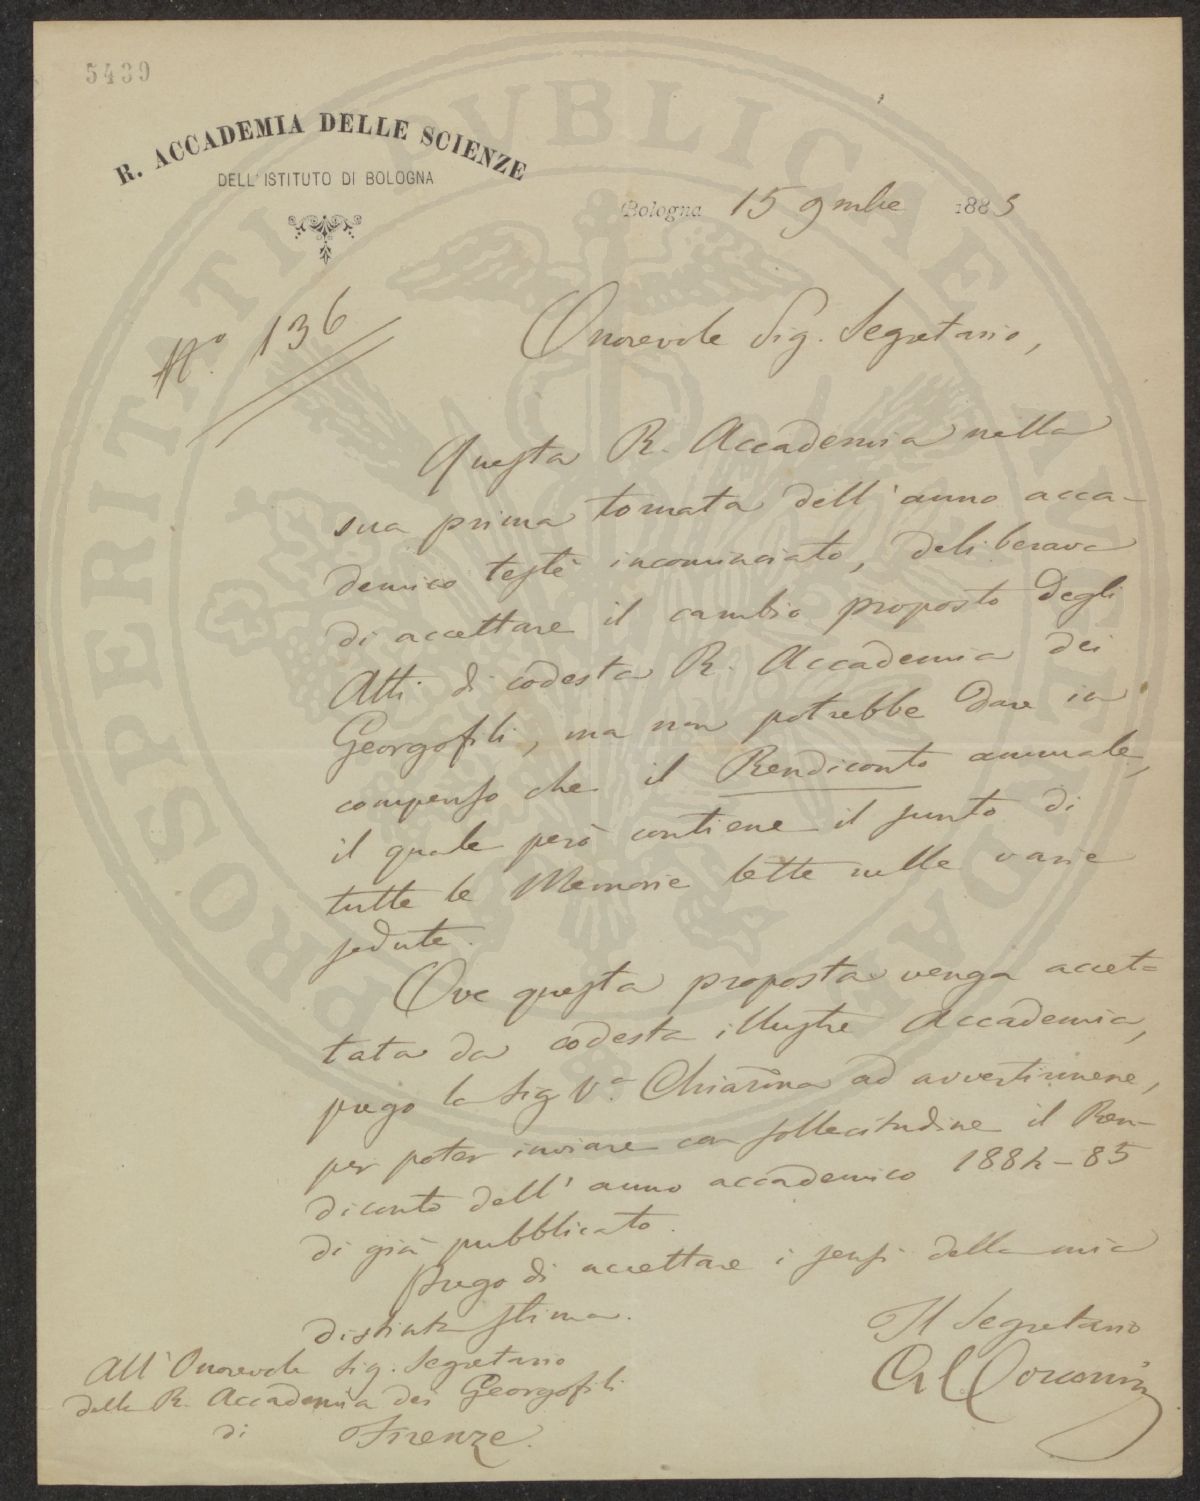 5439
R. ACCADEMIA DELLE SCIENZE
DELL'ISTITUTO DI BOLOGNA
Bologna 15 9mbre 1885
N.º 136
Onorevole Sig. Segretario,
Questa R. Accademia nella
sua prima tornata dell'anno acca-
demico testè incominciato, deliberava
di accettare il cambio proposto degli
Atti di codesta R. Accademia dei
Georgofili, ma non potrebbe dare in
compenso che il Rendiconto annuale,
il quale però contiene il sunto di
tutte le Memorie lette nelle varie
sedute.
Ove questa proposta venga accet-
tata da codesta illustre Accademia,
prego la Sig. V.ª Chiar.ma ad avvertirmene,
per poter inviare con sollecitudine il Ren-
diconto dell'anno accademico 1884-85
di già pubblicato.
Prego di accettare i sensi della mia
distinta stima.
Il Segretario
All'Onorevole Sig. Segretario
della R. Accademia dei Georgofili
di Firenze.
PROSPERITATI PUBLICAE AUGENDAE